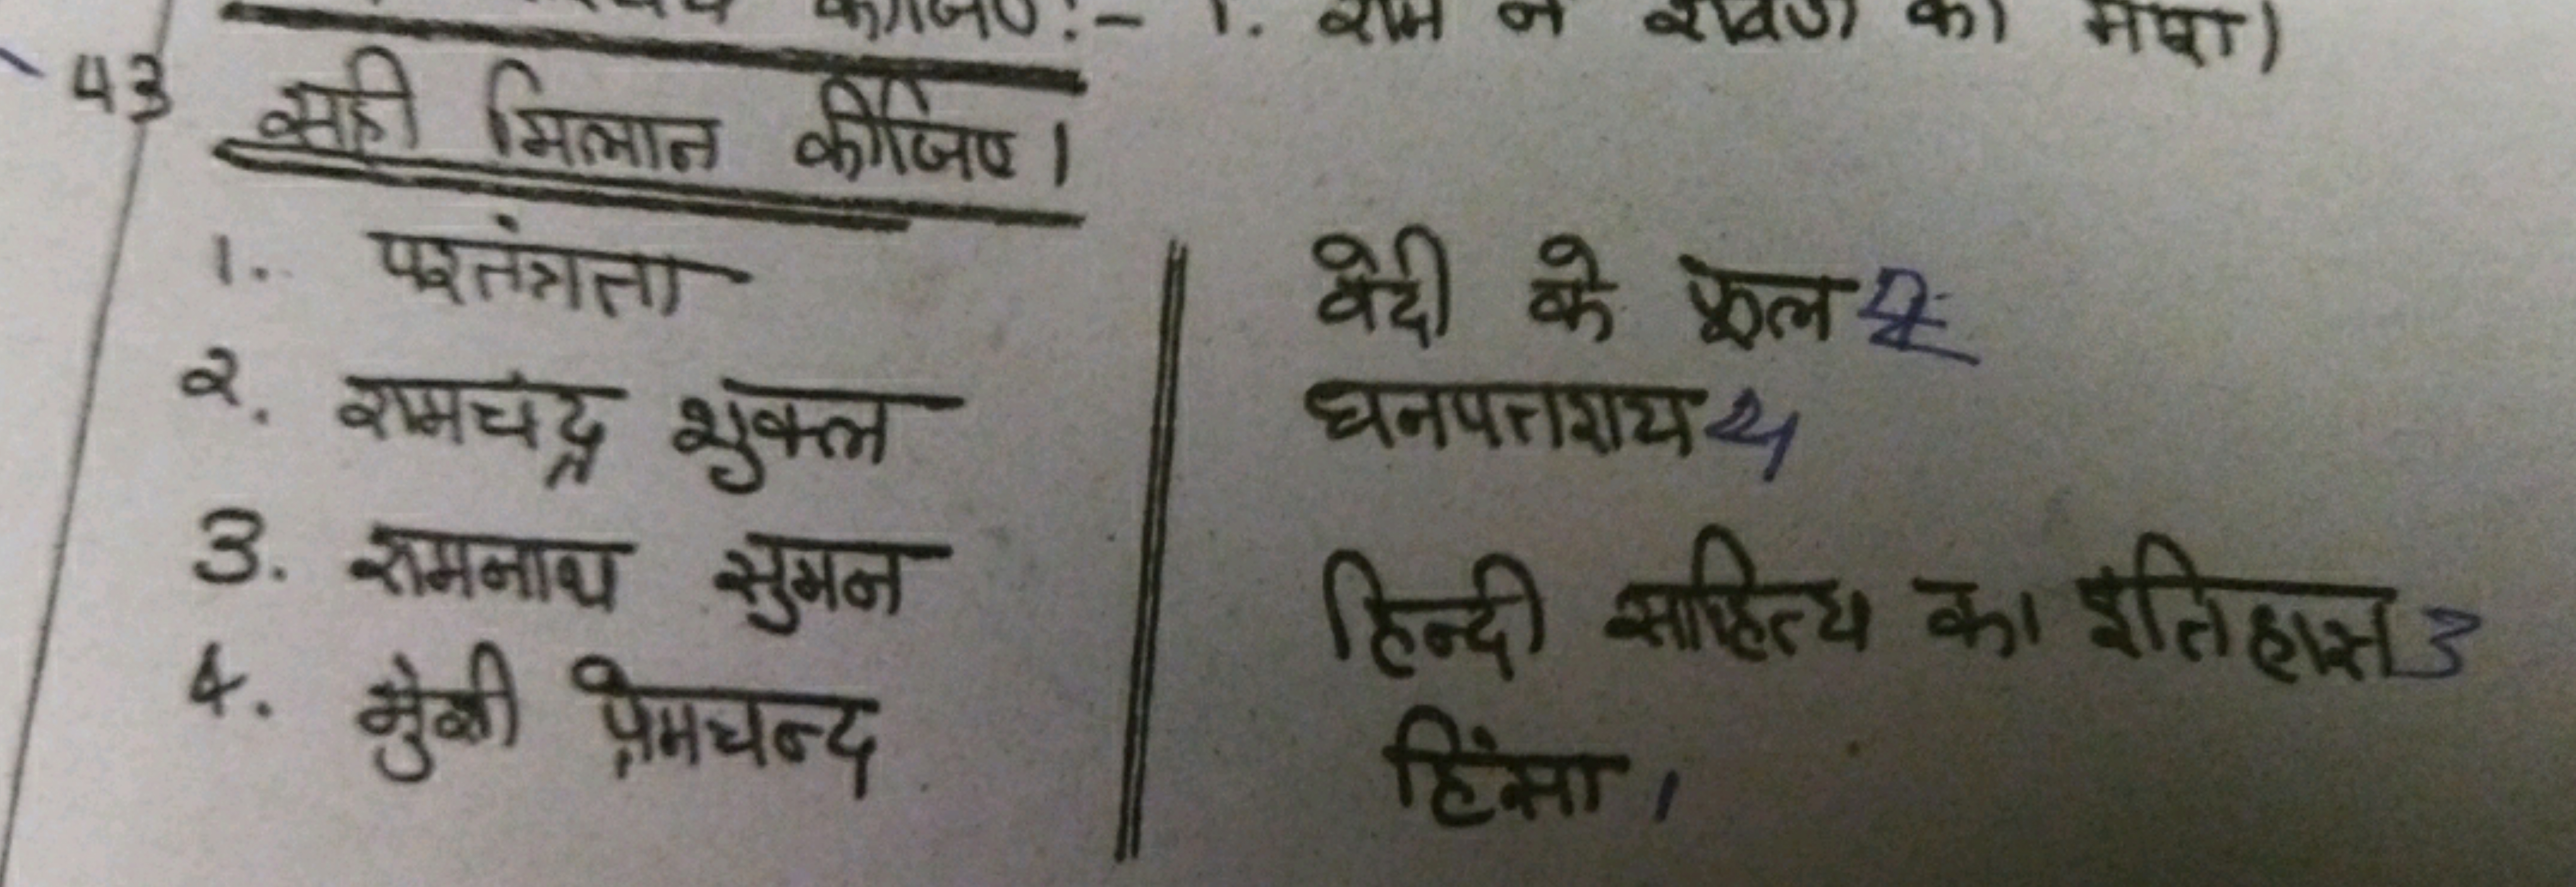 कीजिए:- 1. राम ने रावण को मारा)
43 सही मिलान कीजिए।
1. परतंत्रता
२. रामचंद्र शुक्ल
3. रामनाथ सुमन
4. मुंशी प्रेमचन्द
वेदी के फूल 2
धनपतराय 4
हिन्दी साहित्य का इतिहास 3
हिंसा 1